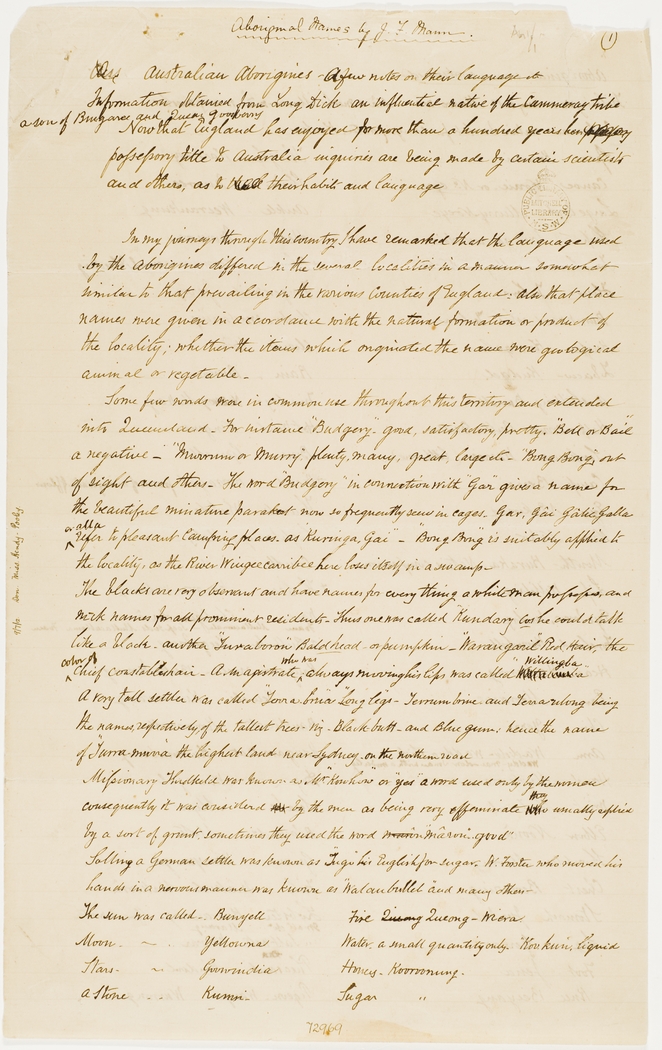 Aboriginal Names by J. F. Mann.
(1)
Australian Aborigines - A few notes on their language &
Information obtained from Long Dick an influential native of the Cammeray tribe
a son of Bungaree and Queen Gooseberry
Now that England has enjoyed for more than a hundred years
possessory title to Australia inquiries are being made by certain scientists
and others, as to their habits and language
In my journeys through this country I have remarked that the language used
by the aborigines differed in the several localities in a manner somewhat
similar to that prevailing in the various Counties of England: also that place
names were given in accordance with the natural formation or product of
the locality; whether the items which originated the name were geological
animal or vegetable -
Some few words were in common use throughout this territory and extended
into Queensland - For instance "Budgery - good, satisfactory, pretty. "Bell or Bail"
a negative - "Murrum or Murry" plenty, many, great, large etc - "Bong Bong", out
of sight and others - The word "Budgery" in connection with Gar gives a name for
the beautiful miniature parakeet now so frequently seen in cages. Gar, Gai Galie Galla
or alla
refer to pleasant Camping places. as Kuringa, Gai - "Bong Bong" is suitably applied to
the locality, as the River Wingeecarribee here loses itself in a swamp -
The blacks are very observant and have names for every thing a white man possesses, and
nick names for all prominent residents - Thus one was called "Kundary" as he could talk
like a black - another "Turraboron" Bald head - or pumpkin - Warangaril Red Hair, the
color of
Chief constables hair - A magistrate, who was always moving his lips was called "Willingba
A very tall settler was called "Torra bria" "Long legs - Terrumbrine and Terra rulong being
the names, respectively of the tallest trees - viz - Black butt - and Blue gum; hence the name
of Turra-murra the highest land near Sydney - on the northern road
Missionary Threlkeld was known as "Mr Kowhow" or "yes" a word used only by the women
consequently it was considered by the men as being very effeminate they usually replied
by a sort of grunt, sometimes they used the word maroin - good"
Salling a German settler was known as "Tugi his English for sugar. W. Forster who moved his
hands in a nervous manner was known as "Walanbullet" and many others -
The sun was called - Bunyell Fire Queong - Wiera
Moon. - Yellowna Water, a small quantity only "Kowkun, liquid
Stars. - Goowindia Honey - Kooroonung.
a Stone - Kumri - Sugar "
72969